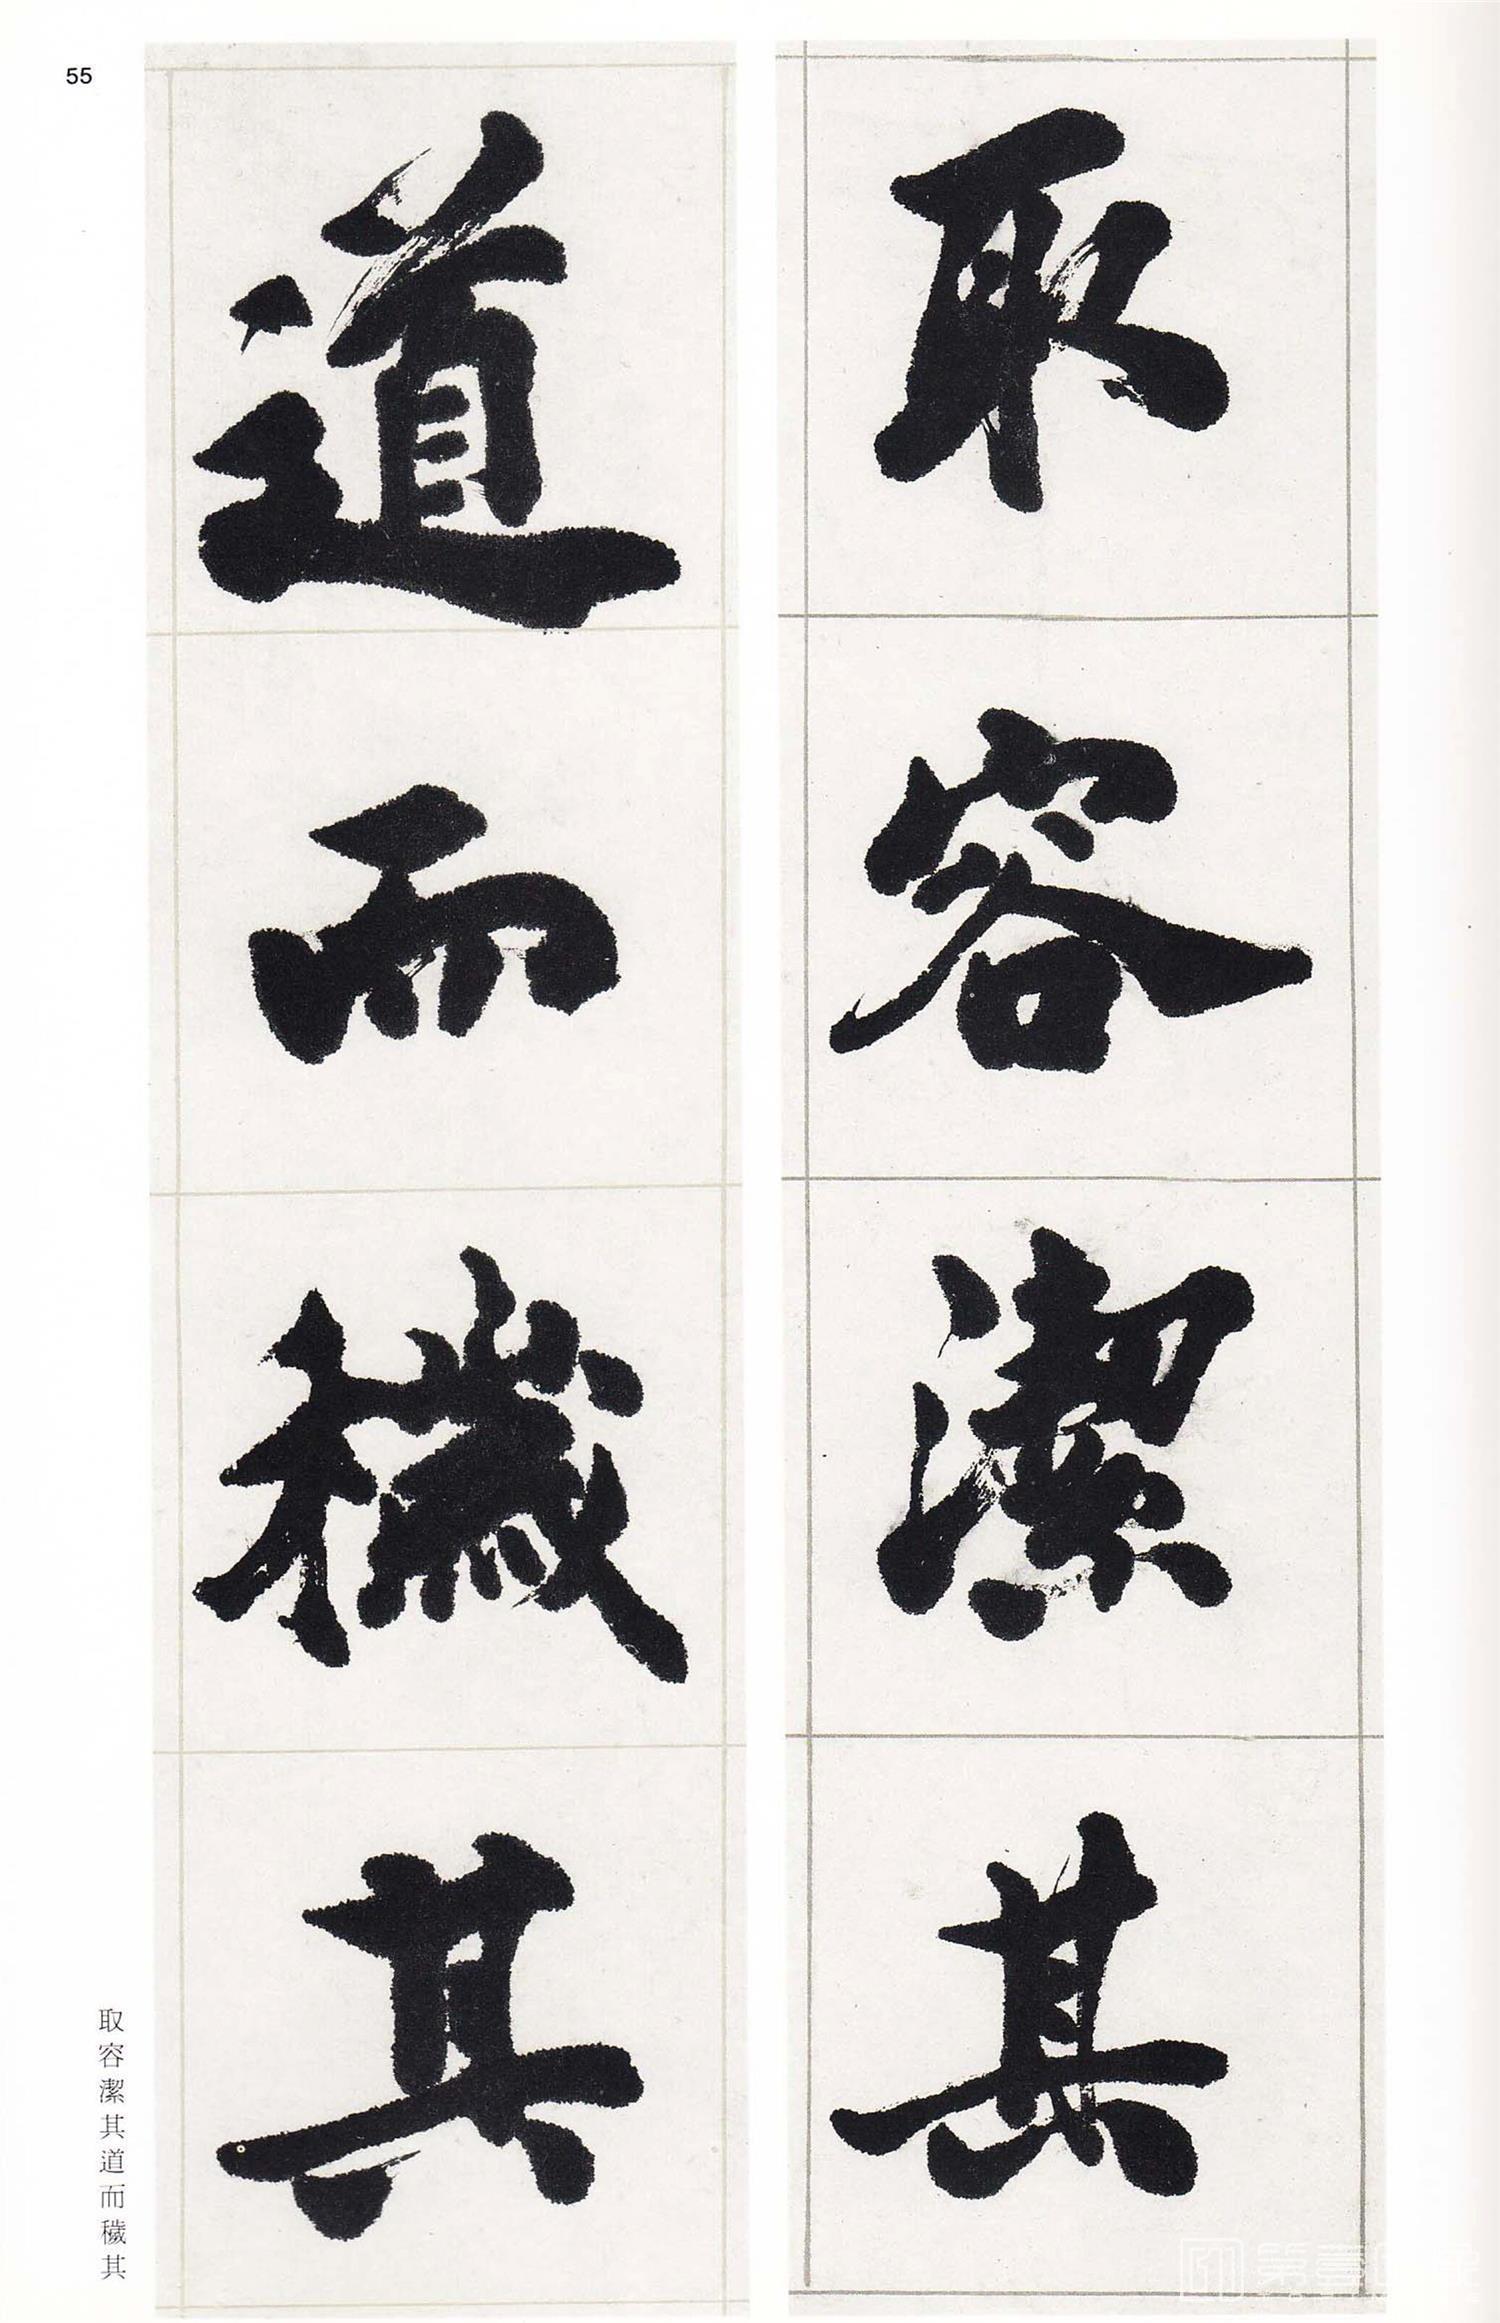 取容潔其
道而穢其
取容潔其道而穢其
55